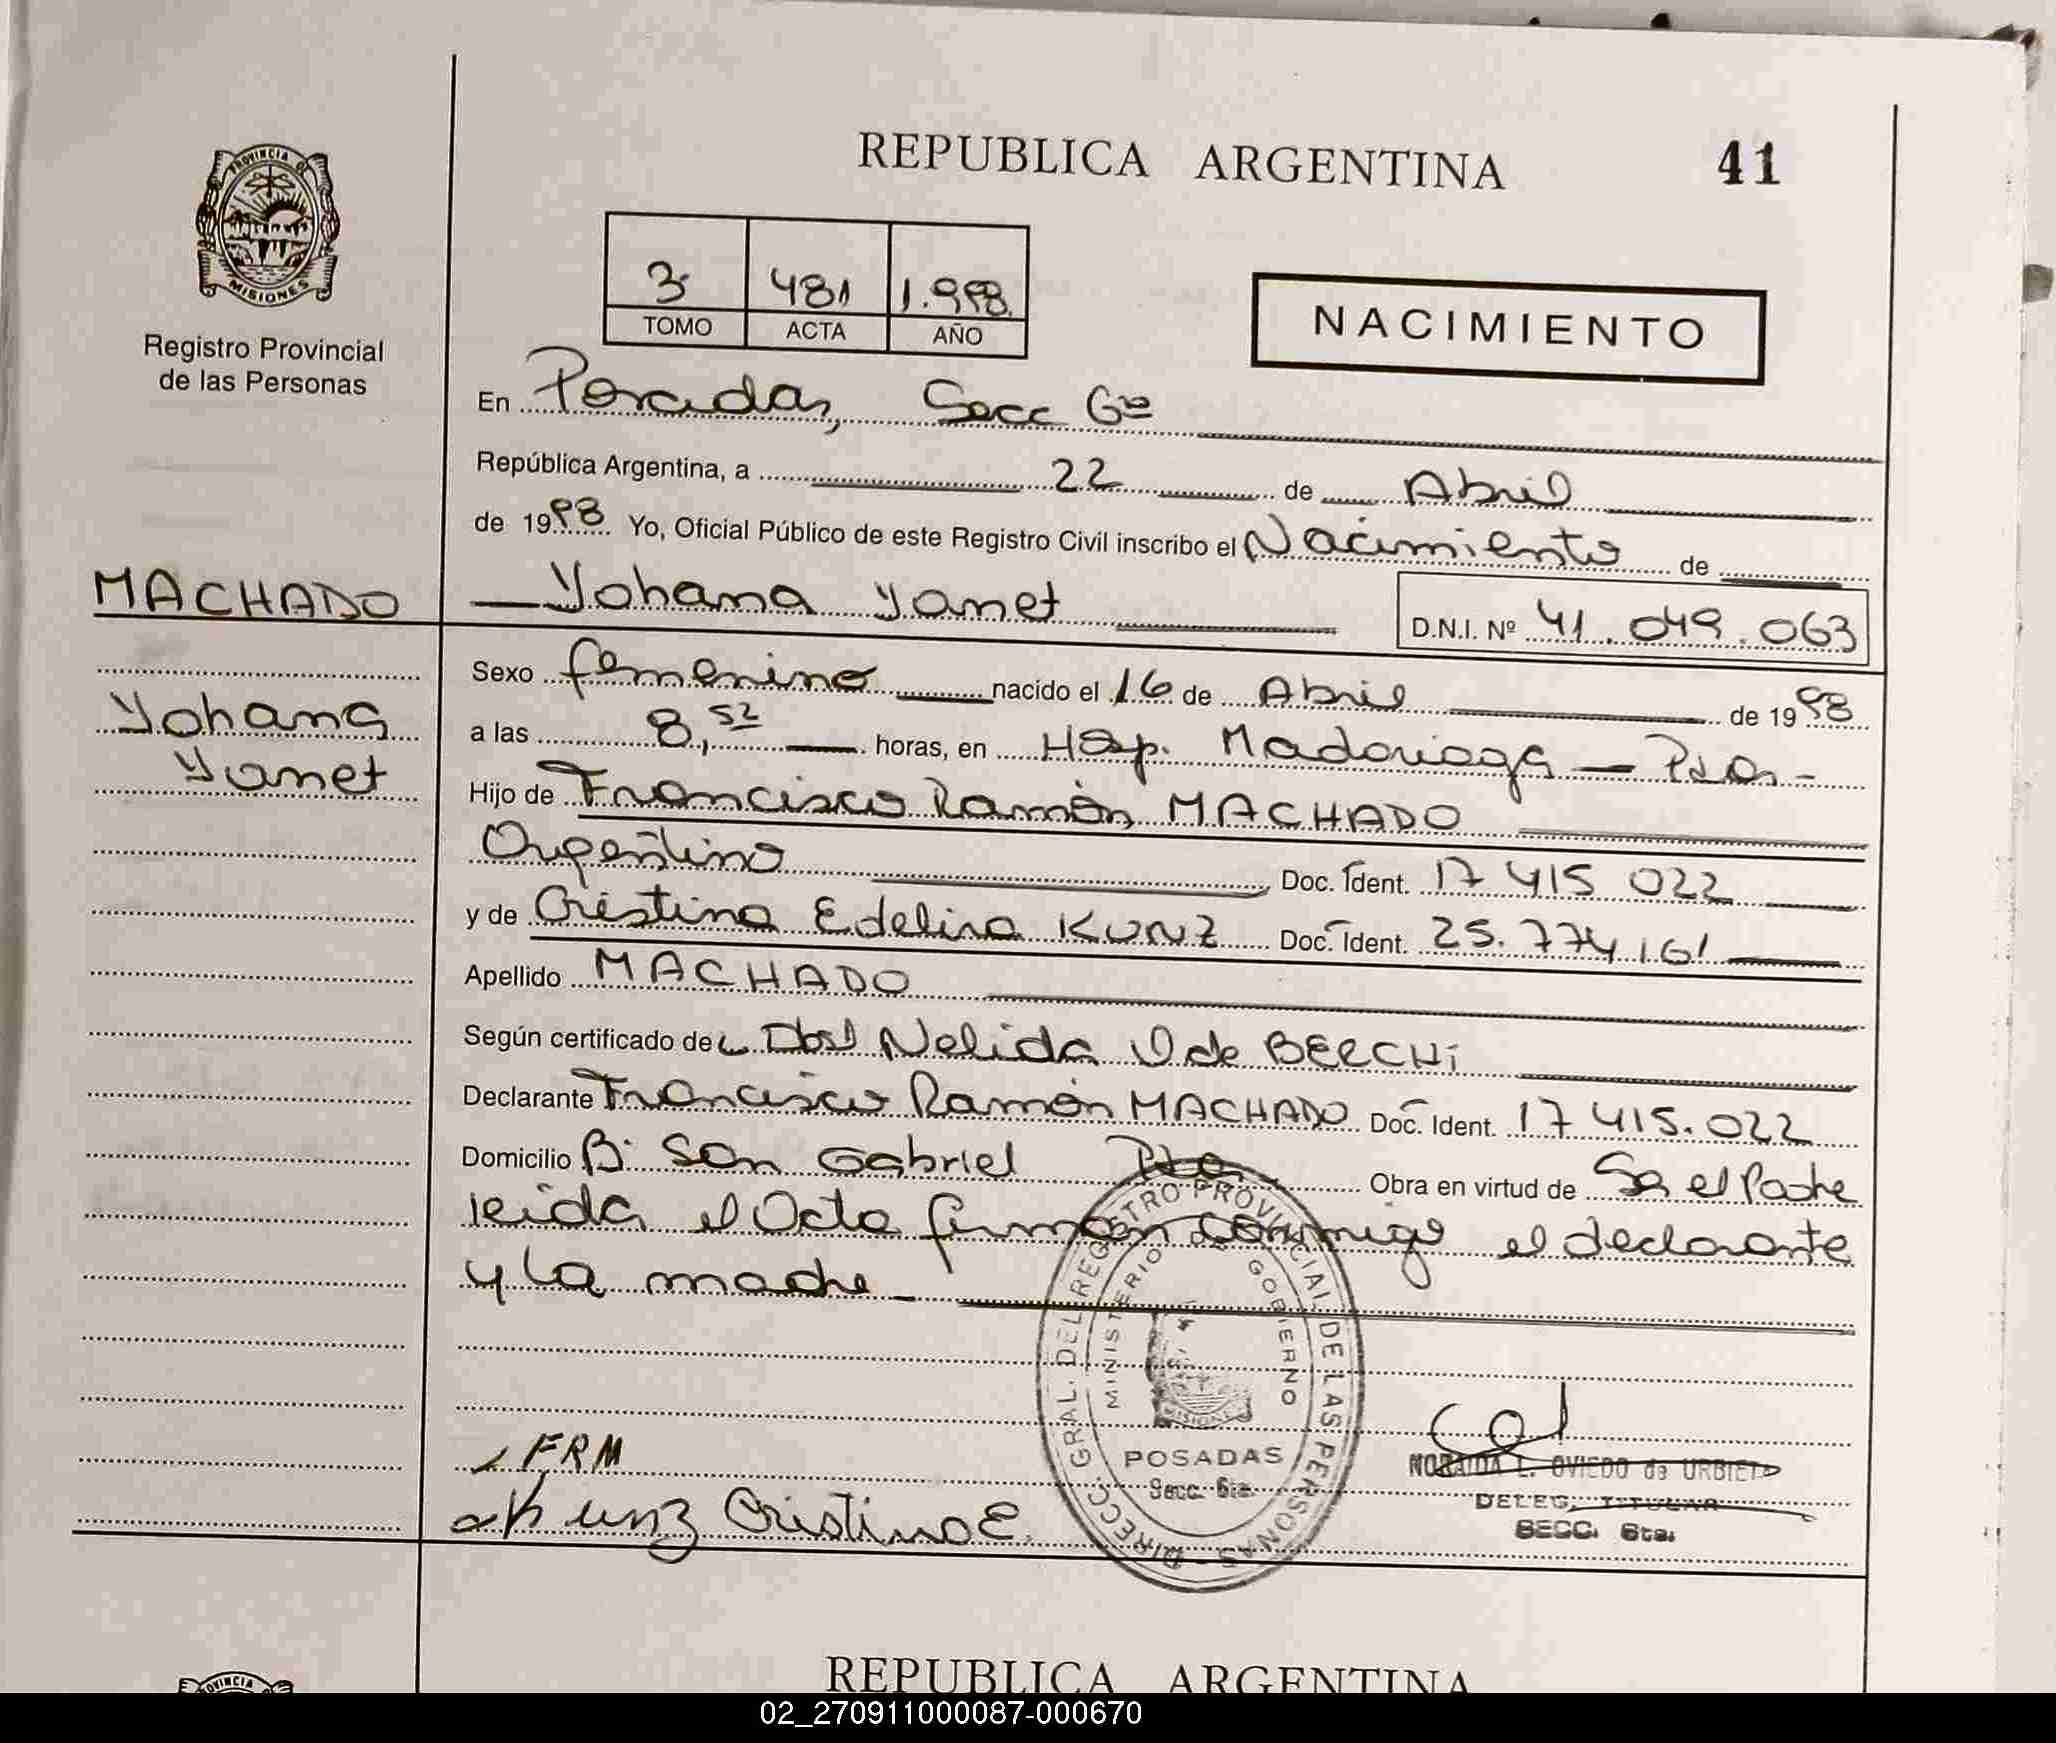 REPUBLICA ARGENTINA 41
PROVINCIA DE
MISIONES
Registro Provincial
de las Personas
3 481 1.998
TOMO ACTA AÑO
NACIMIENTO
En Posadas, Secc 6ta
República Argentina, a 22 de Abril
de 1998 Yo, Oficial Público de este Registro Civil inscribo el Nacimiento de
MACHADO
Yohana Yanet
D.N.I. Nº 41.049.063
Yohana
Yanet
Sexo femenino nacido el 16 de Abril de 1998
a las 8,52 horas, en Hosp. Madariaga - Pdas -
Hijo de Francisco Ramón MACHADO
Argentino Doc. Ident. 17 415 022
y de Cristina Edelira KUNZ Doc. Ident. 25.774161
Apellido MACHADO
Según certificado de Nelida de BERCHI
Declarante Francisco Ramón MACHADO Doc. Ident. 17 415.022
Domicilio Bº San Gabriel Pdas Obra en virtud de Ser el Padre
leida el Acta firman conmigo el declarante
y la madre
DIRECC. GRAL. DEL REGISTRO PROVINCIAL DE LAS PERSONAS
MINISTERIO GOBIERNO
MISIONES
POSADAS
Secc. 6ta.
FRM
Kunz Cristina E.
NORAIDA L. OVIEDO de URBIETA
DELEG. TITULAR
SECC. 6ta.
REPUBLICA ARGENTINA
02_270911000087-000670